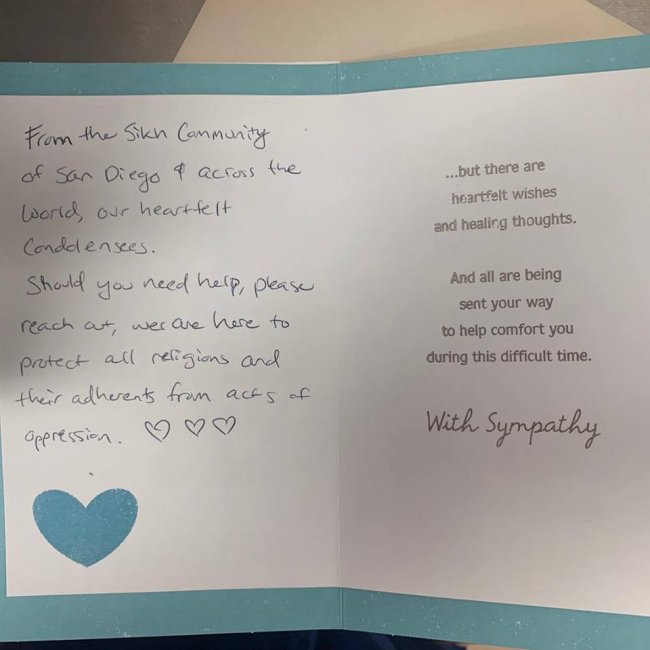 From the Sikh Community
of San Diego & across the
World, our heartfelt
Conddensees.
Should you need help, please
reach out, wer are here to
protect all religions and
their adherents from acts of
oppression. ♡ ♡ ♡
...but there are
heartfelt wishes
and healing thoughts.
And all are being
sent your way
to help comfort you
during this difficult time.
With Sympathy